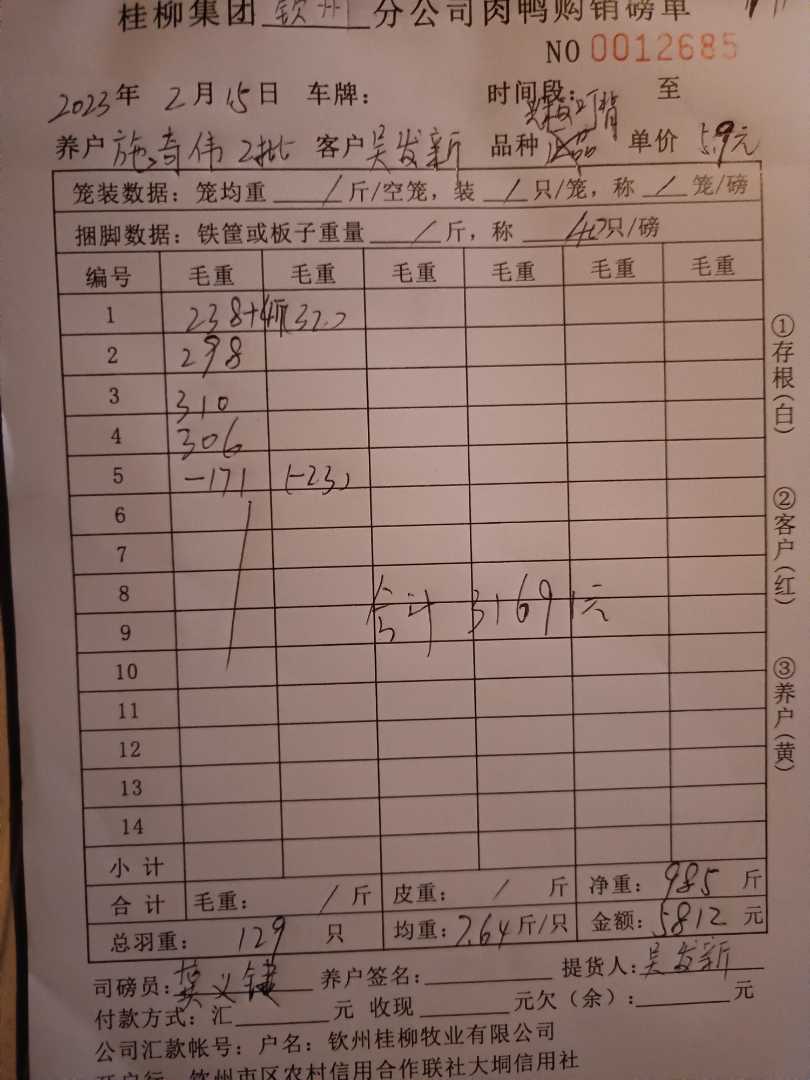 桂柳集团 钦州 分公司肉鸭购销磅单
NO 0012685
2023年 2月15日 车牌： 时间段： 至
养户 施奇伟 2批 客户 吴发新 品种 单价 5.9元
笼装数据：笼均重 / 斤/空笼，装 / 只/笼，称 / 笼/磅
捆脚数据：铁筐或板子重量 / 斤，称 40只/磅
编号 毛重 毛重 毛重 毛重 毛重 毛重
1 238+ (32只)
2 298
3 310
4 306
5 -171 (-23只)
6
7
8
合计 31691元
9
10
11
12
13
14
小计
合计 毛重： / 斤 皮重： / 斤 净重：985 斤
总羽重： 129 只 均重：7.64斤/只 金额：5812 元
司磅员： 养户签名： 提货人：吴发新
付款方式：汇 元 收现 元欠（余）： 元
公司汇款帐号：户名：钦州桂柳牧业有限公司
开户行：钦州市区农村信用合作联社大垌信用社
①存根（白）
②客户（红）
③养户（黄）